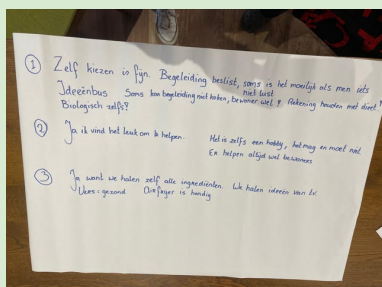 ① Zelf kiezen is fijn. Begeleiding beslist, soms is het moeilijk als men iets niet lust
Ideeënbus Soms kan begeleiding niet koken, bewoner wel? Rekening houden met dieet?
Biologisch zelfs?
② Ja ik vind het leuk om te helpen. Het is zelfs een hobby, het mag en moet niet
En helpen altijd wel bewoners
③ Ja want we halen zelf alle ingrediënten. We halen ideeën van tv.
Vers = gezond Airfryer is handig